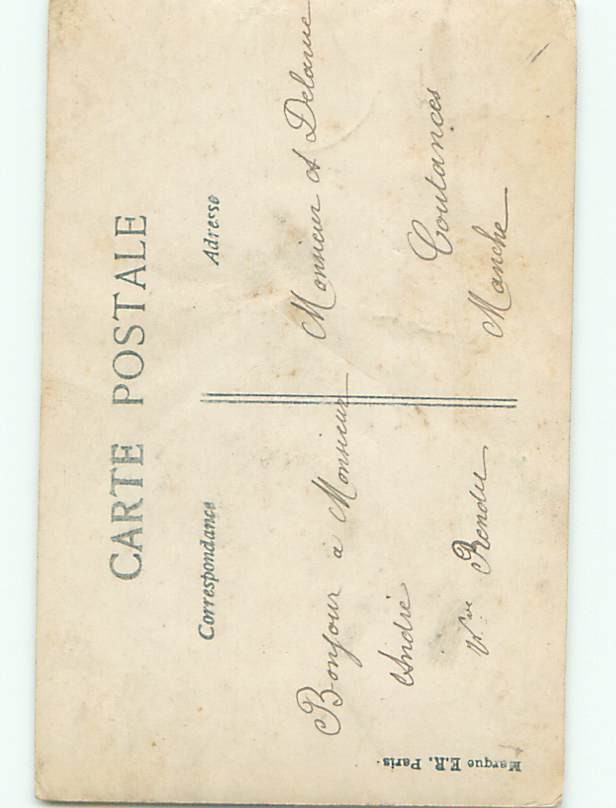 CARTE POSTALE
Correspondance
Adresse
Bonjour à Monsieur
André
Vve Rendu
Monsieur A Delarue
Coutances
Manche
Marque E.R. Paris.